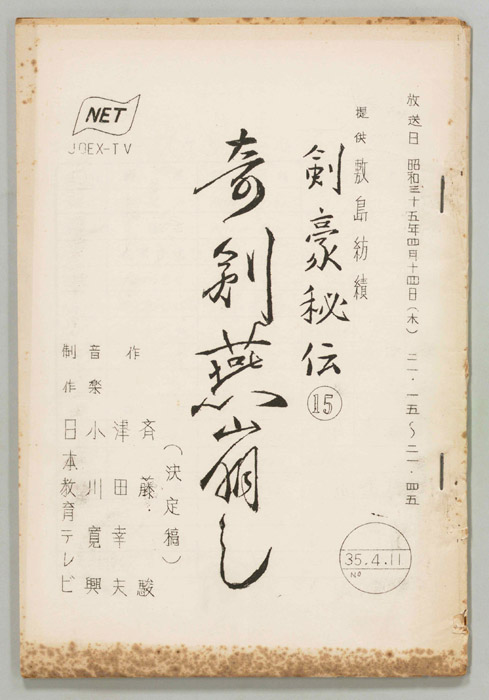 放送日 昭和三十五年四月十四日(木) 二一・一五〜二一・四五
提供 敷島紡績
剣豪秘伝 ⑮
奇剣燕崩し
(決定稿)
作 斉藤駿
津田幸夫
音楽 小川寛興
制作 日本教育テレビ
NET
JOEX-TV
35.4.11
NO